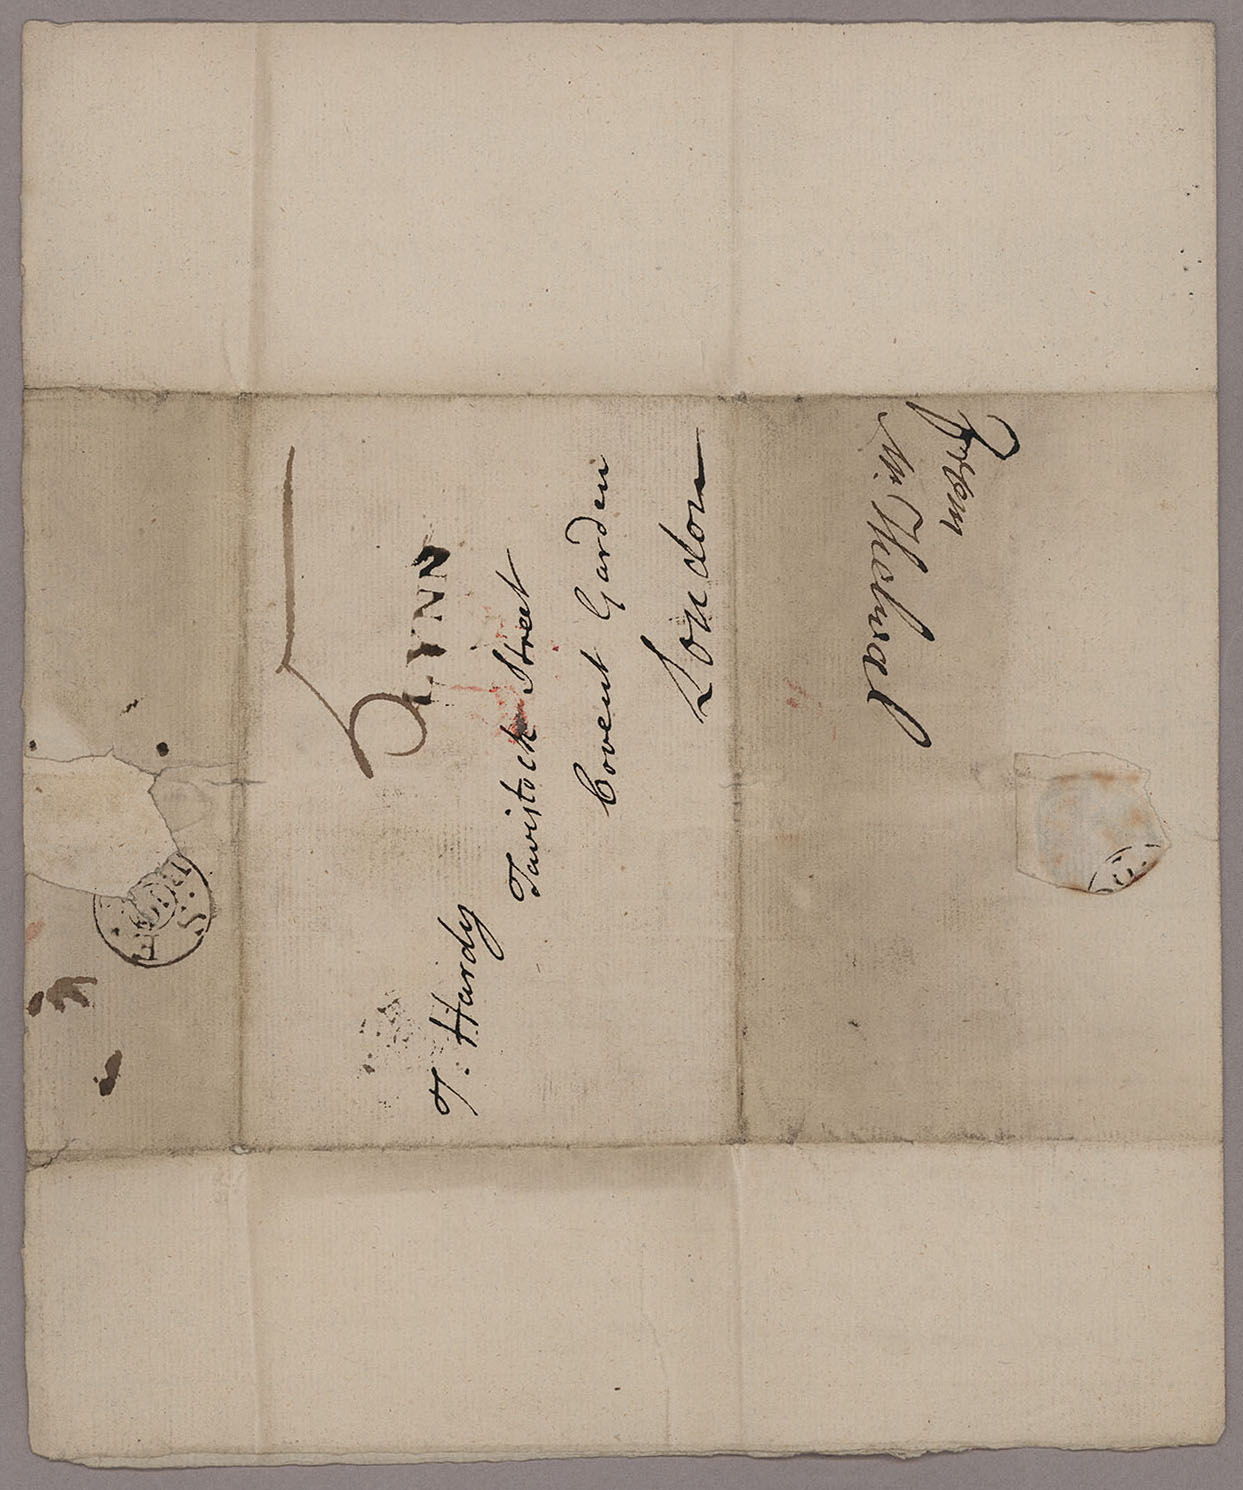 LYNN
T. Hardy
Tavistock Street
Covent Garden
London
From
Mr. Thelwal